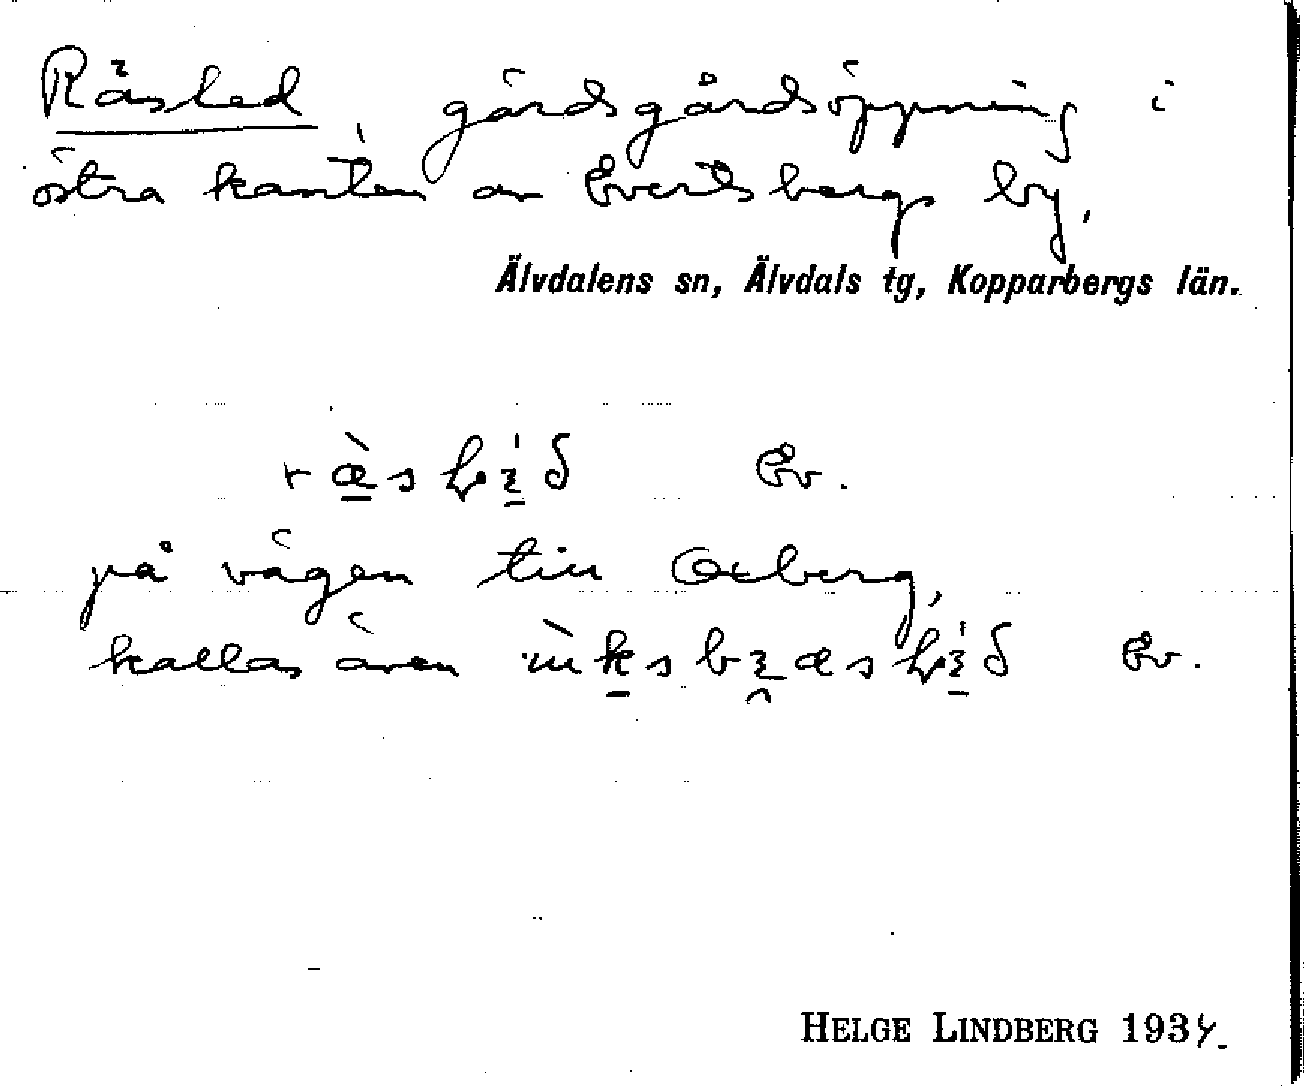 Råsled gärdsgårdsöppning i
östra kanten av Evertsbergs by.
Älvdalens sn, Älvdals tg, Kopparbergs län.
Ev.
på vägen till Oxberg,
kallas även Ev.
HELGE LINDBERG 1934.